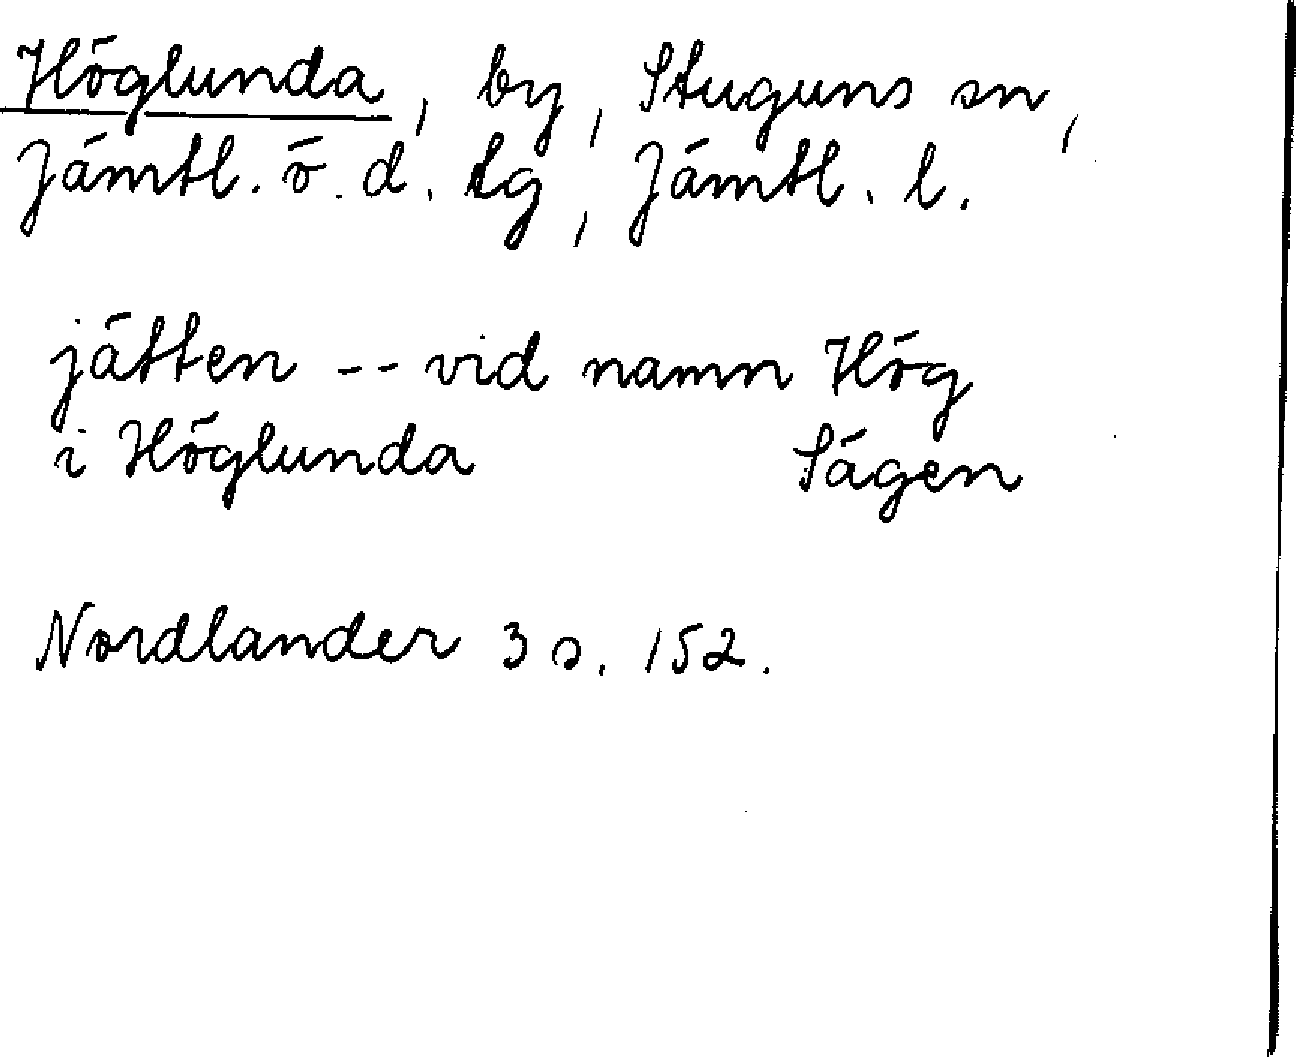 Höglunda, by, Stuguns sn,
Jämtl. ö. d. tg, Jämtl. l.
jätten -- vid namn Hög
i Höglunda Sägen
Nordlander 3 s. 152.